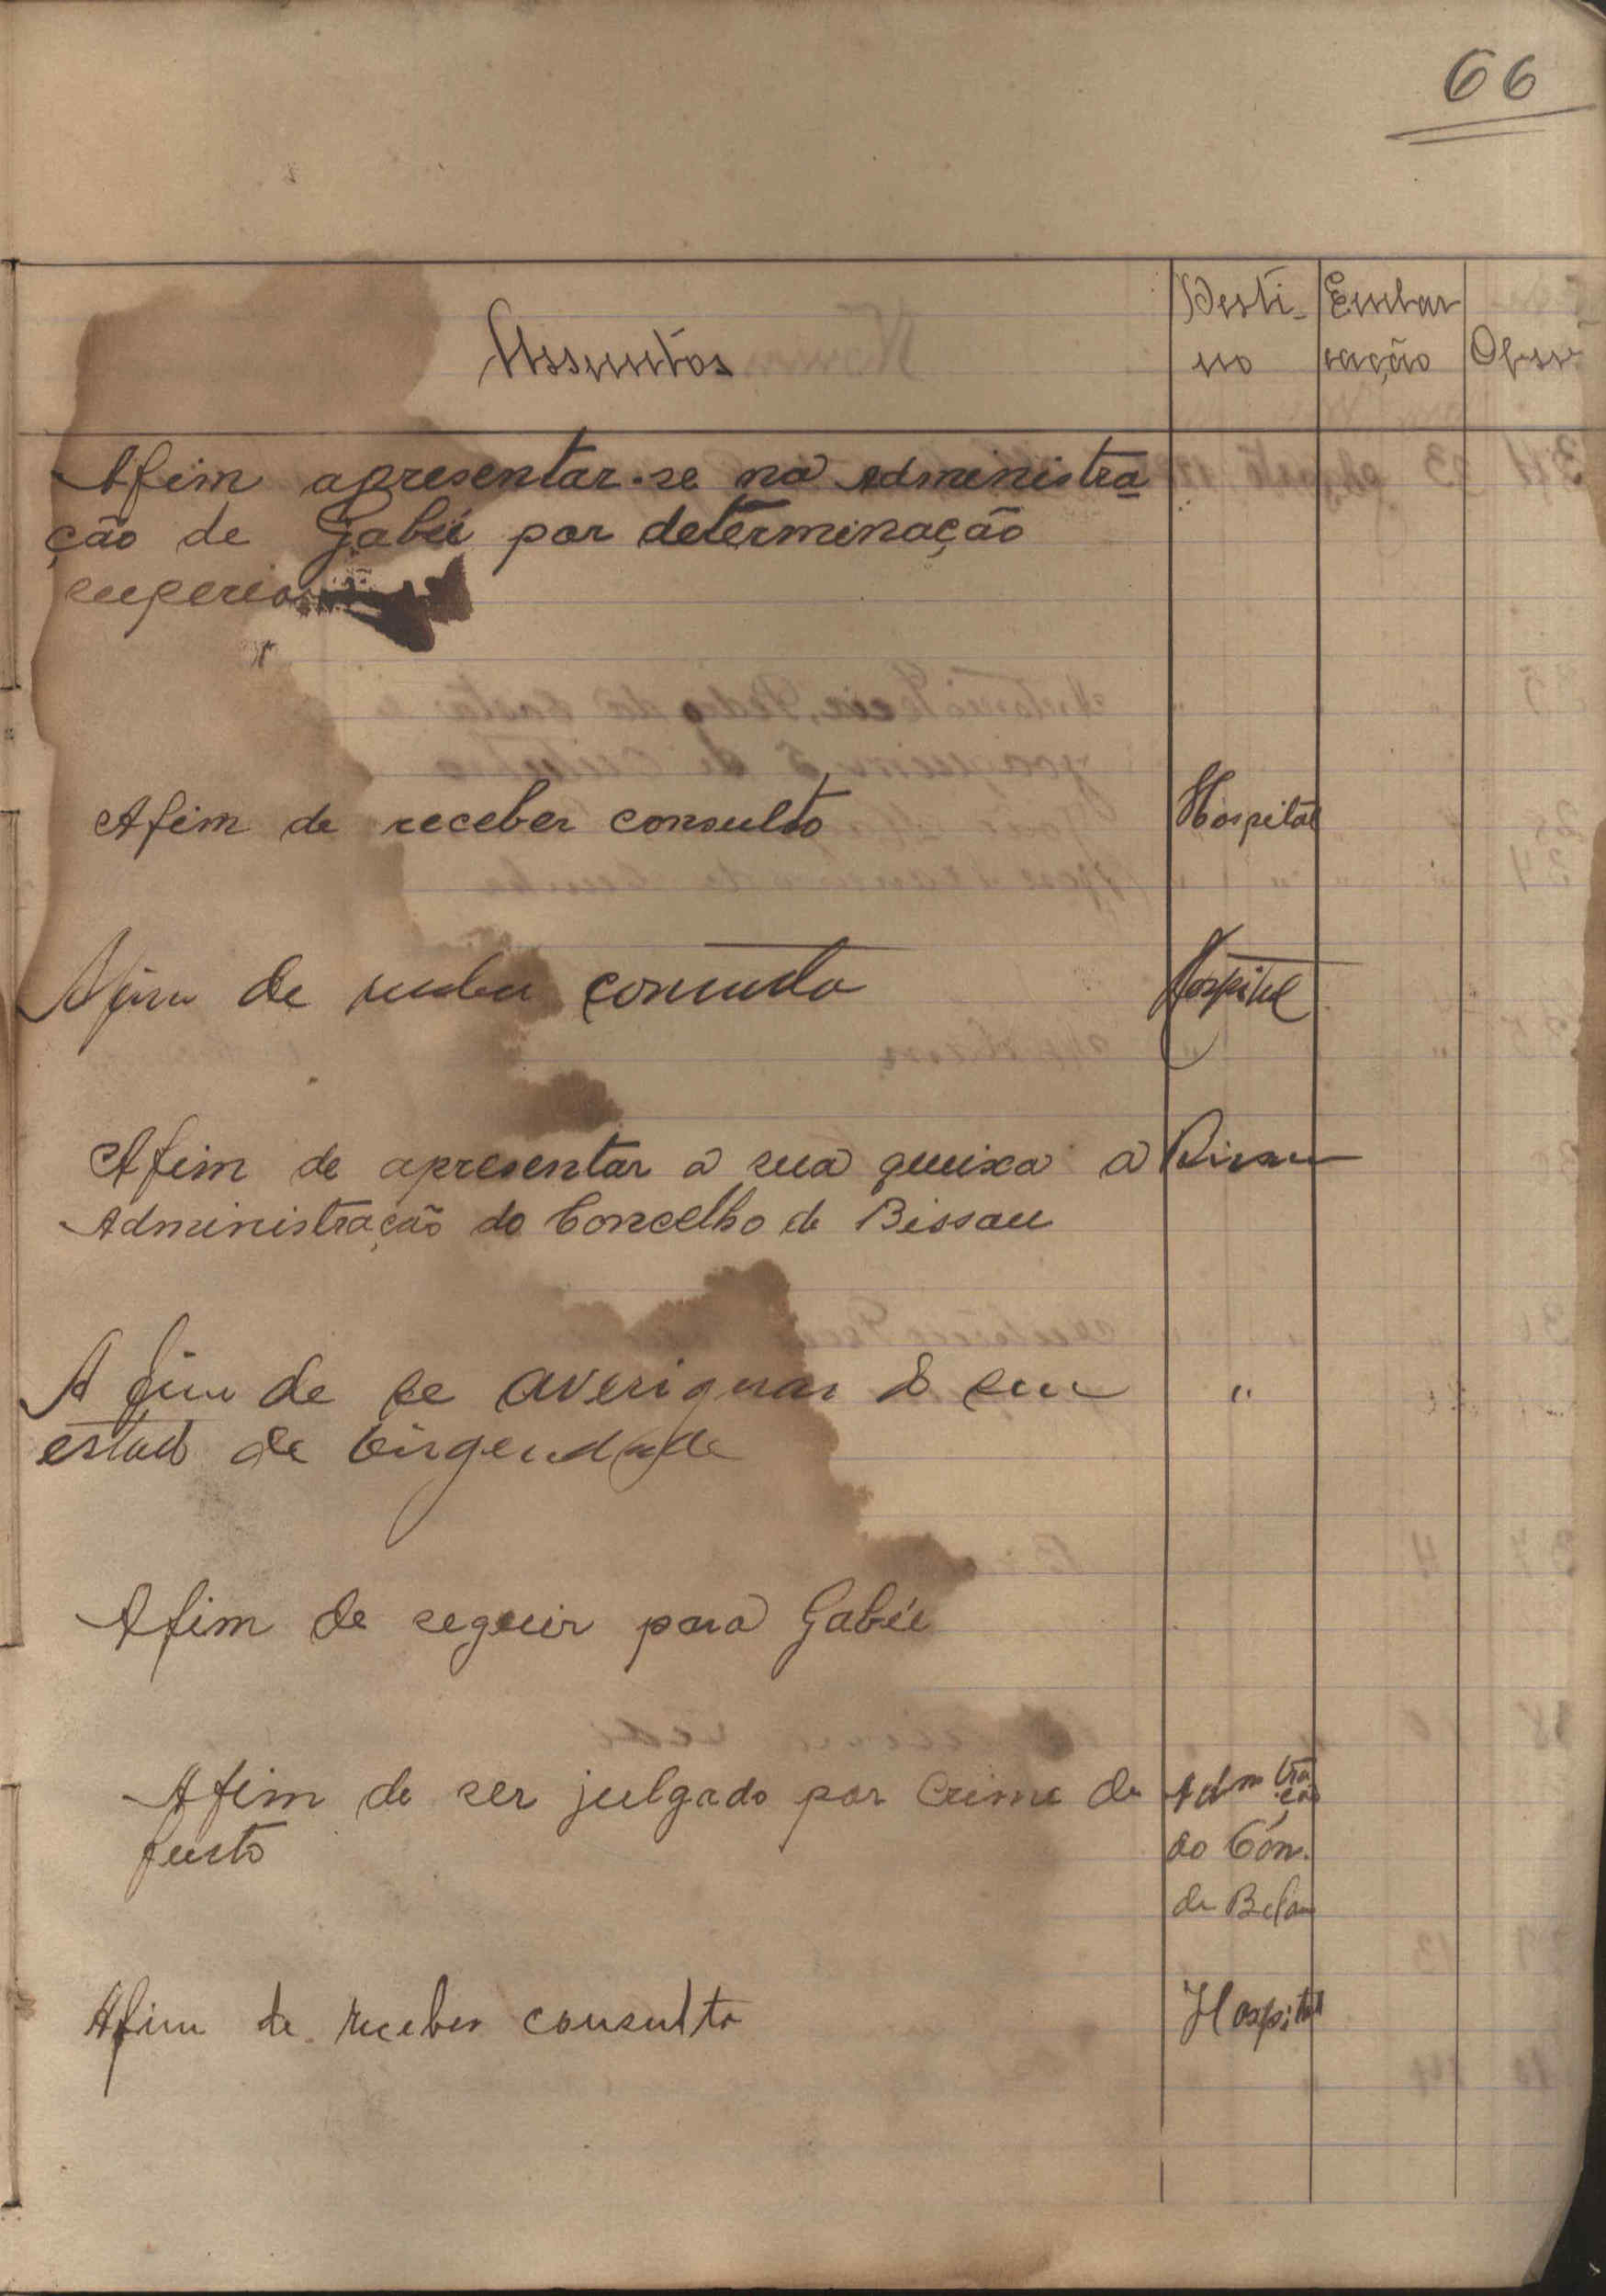 66
Assuntos
Desti-
no
Embar
cação
Obser
Afim apresentar-se na Administra
ção de Gabú por determinação
superior
Afim de receber consulto
Hospital
Afim de receber consulta
Hospital
Afim de apresentar a sua queixa a
Bissau
Administração do Concelho de Bissau
A fim de se averiguar o seu
"
estado de virgendade
Afim de seguir para Gabú
Afim de ser julgado por Crime de
furto
Admtra
ção
do Con.
de
Afim de receber consulta
Hospital